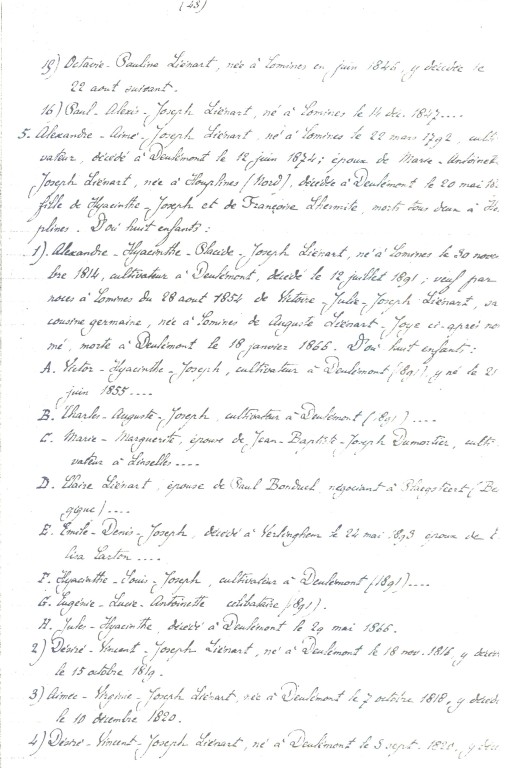 (43)
15) Octavie-Pauline Liénart, née à Comines en juin 1846, y décédée le
22 aout suivant.
16) Paul-Alexis-Joseph Liénart, né à Comines le 14 déc. 1847....
5. Alexandre-Aimé-Joseph Liénart, né à Comines le 22 mars 1792, culti
vateur, décédé à Deulémont le 12 juin 1874; époux de Marie-Antoinet
Joseph Liénart, née à Houplines (Nord), décédée à Deulémont le 20 mai
fille de Hyacinthe-Joseph et de Françoise Lhermite, morts tous deux à Hou
plines. D'où huit enfants:
1). Alexandre-Hyacinthe-Placide-Joseph Liénart, né à Comines le 30 novem
bre 1814, cultivateur à Deulémont, décédé le 12 juillet 1891; veuf par
noces à Comines du 28 aout 1854 de Victoire-Julie-Joseph Liénart, sa
cousine germaine, née à Comines de Auguste Liénart-Joye ci-après nom
mé, morte à Deulémont le 18 janvier 1866. D'où huit enfants:
A. Victor-Hyacinthe-Joseph, cultivateur à Deulémont (1891) y né le 21
juin 1855....
B. Charles-Auguste-Joseph, cultivateur à Deulémont (1891)....
C. Marie-Marguerite, épouse de Jean-Baptiste-Joseph Dumortier, culti
vateur à Linselles....
D. Claire Liénart, épouse de Paul Bonduel négociant à Ploegsteert (Bel
gique)....
E. Emile-Denis-Joseph, décédé à Verlinghem le 24 mai 1893 époux de E
lisa Carton....
F. Hyacinthe-Louis-Joseph, cultivateur à Deulémont (1891)....
G. Eugénie-Lucie-Antoinette célibataire (1891).
H. Jules-Hyacinthe, décédé à Deulémont le 29 mai 1866.
2) Désiré-Vincent-Joseph Liénart, né à Deulémont le 18 nov. 1816, y décéd
le 15 octobre 1819.
3) Aimée-Virginie-Joseph Liénart, née à Deulémont le 7 octobre 1818, y décédé
le 10 décembre 1820.
4) Désiré-Vincent-Joseph Liénart, né à Deulémont le 3 sept. 1820, y décé